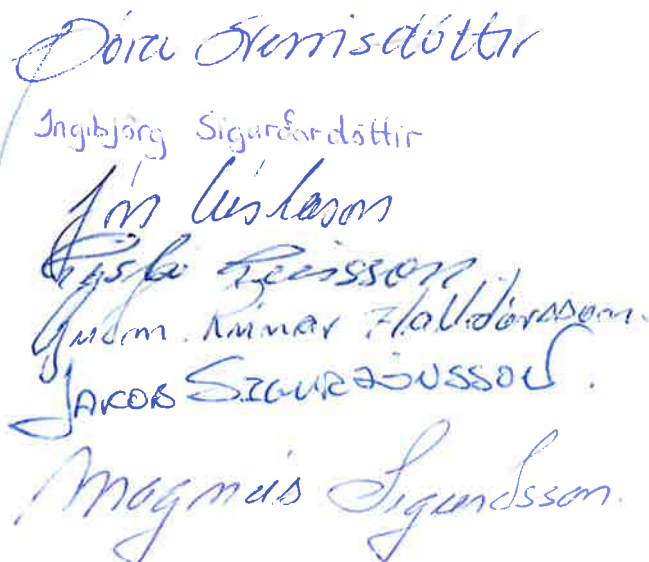 Dóra Sverrisdóttir
Ingibjörg Sigurðardóttir
Jón Gíslason
Gísli Geirsson
Guðm. Rúnar Halldórsson.
JAKOB SIGURJÓNSSON.
Magnús Sigurðsson.